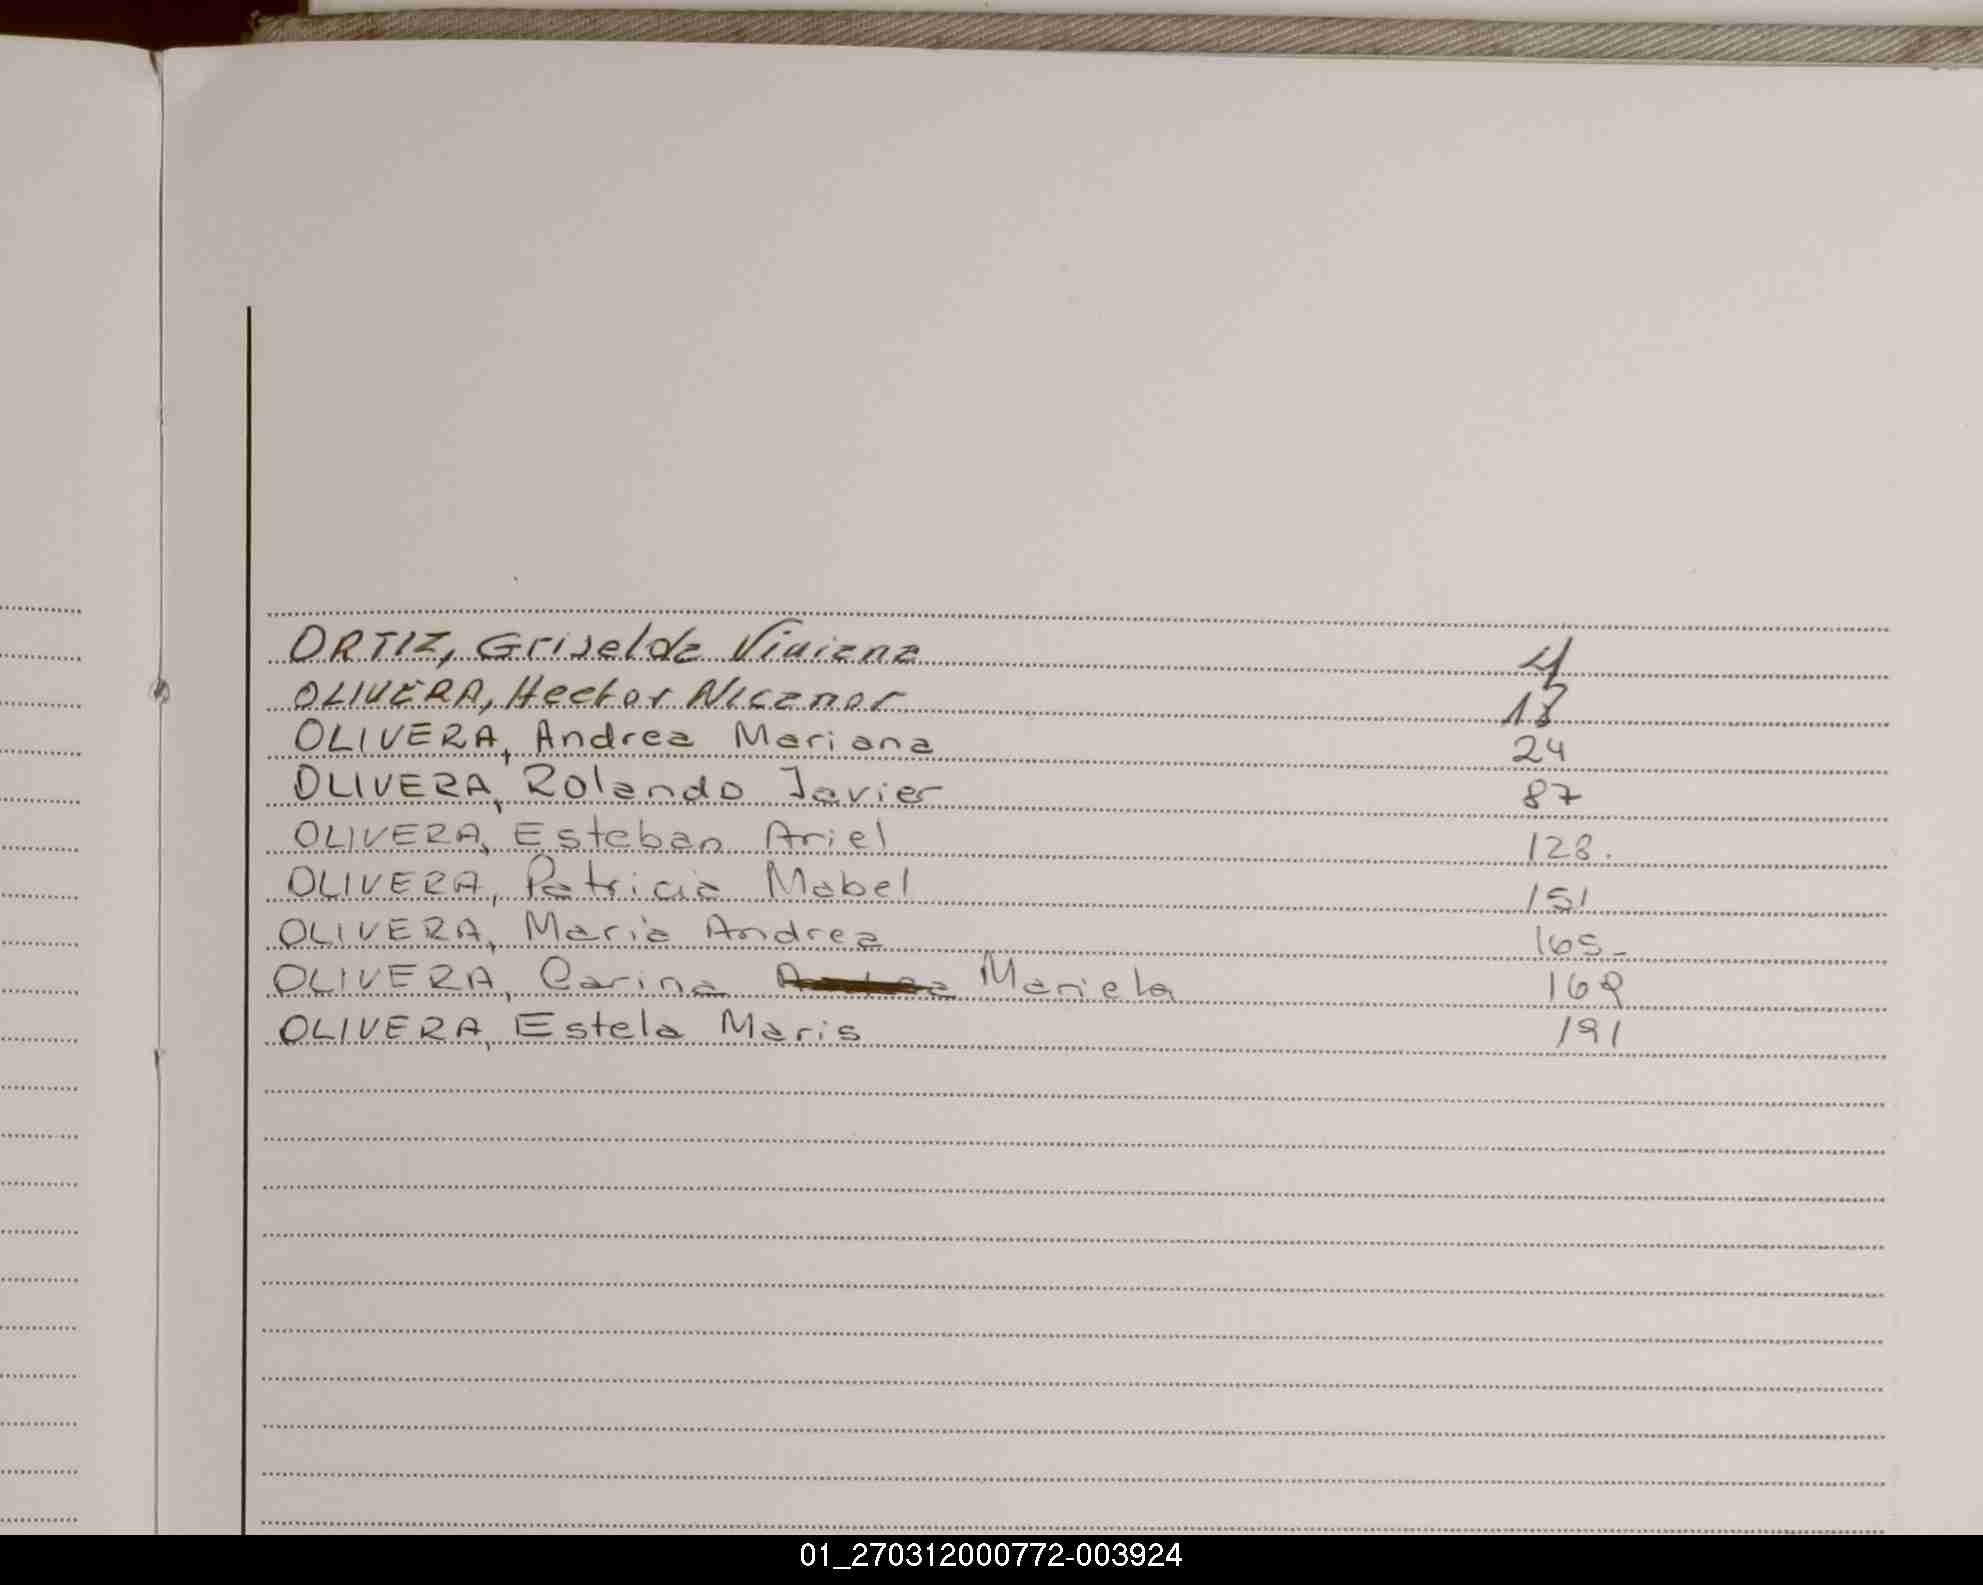 ORTIZ, Griselda Viviana 4
OLIVERA, Hector Nicanor 18
OLIVERA, Andrea Mariana 24
OLIVERA, Rolando Javier 87
OLIVERA, Esteban Ariel 128.
OLIVERA, Patricia Mabel 151
OLIVERA, Maria Andrea 165-
OLIVERA, Carina Mariela 169
OLIVERA, Estela Maris 191
01_270312000772-003924